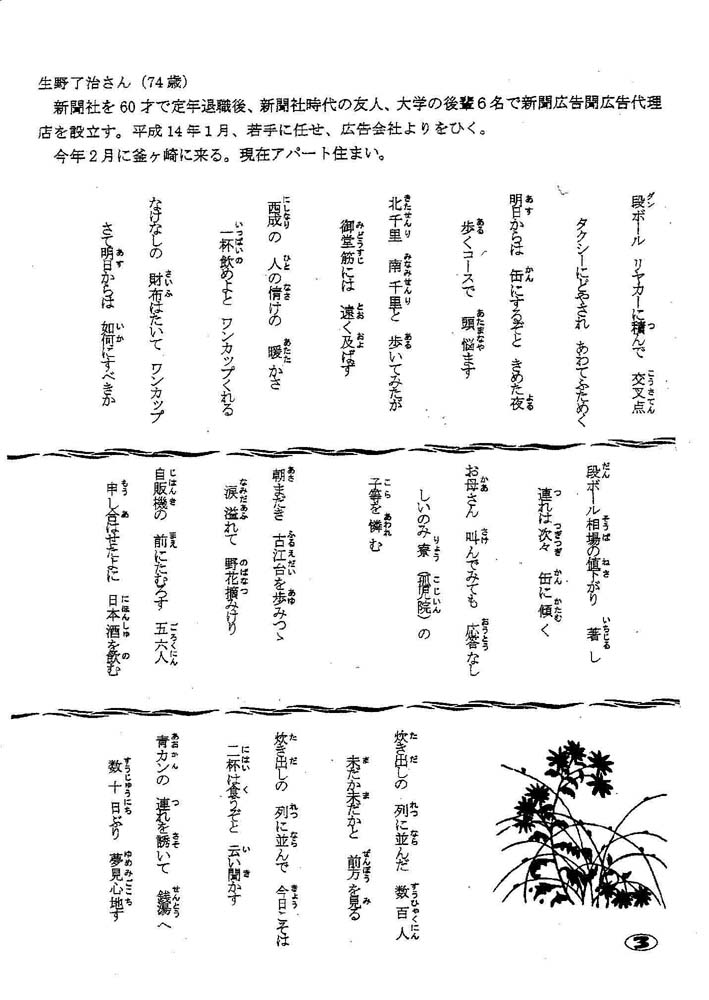 生野了治さん（74歳）
新聞社を60才で定年退職後、新聞社時代の友人、大学の後輩６名で新聞広告聞広告代理
店を設立す。平成14年１月、若手に任せ、広告会社よりをひく。
今年２月に釜ヶ崎に来る。現在アパート住まい。
段ボール リヤカーに積んで 交叉点
タクシーにどやされ あわてふためく
明日からは 缶にするぞと きめた夜
歩くコースで 頭悩ます
北千里 南千里と 歩いてみたが
御堂筋には 遠く及ばず
西成の 人の情けの 暖かさ
一杯飲めよと ワンカップくれる
なけなしの 財布はたいて ワンカップ
さて明日からは 如何にすべきか
段ボール相場の値下がり 著し
連れは次々 缶に傾く
お母さん 叫んでみても 応答なし
しいのみ寮（孤児院）の
子等を憐む
朝まだき 古江台を歩みつゝ
涙溢れて 野花摘みけり
自販機の 前にたむろす 五六人
申し合はせたよに 日本酒を飲む
炊き出しの 列に並んだ 数百人
未だか未だかと 前方を見る
炊き出しの 列に並んで 今日こそは
二杯は食うぞと 云い聞かす
青カンの 連れを誘いて 銭湯へ
数十日ぶり 夢見心地す
3